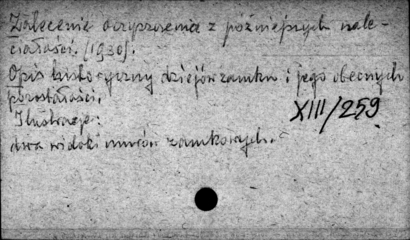 Zalecenie oczyszczenia z późniejszych nale-
ciałości. (1930).
Opis historyczny dziejów zamku i jego obecnych
pozostałości.
XIII/259
Ilustracje:
dwa widoki murów zamkowych.